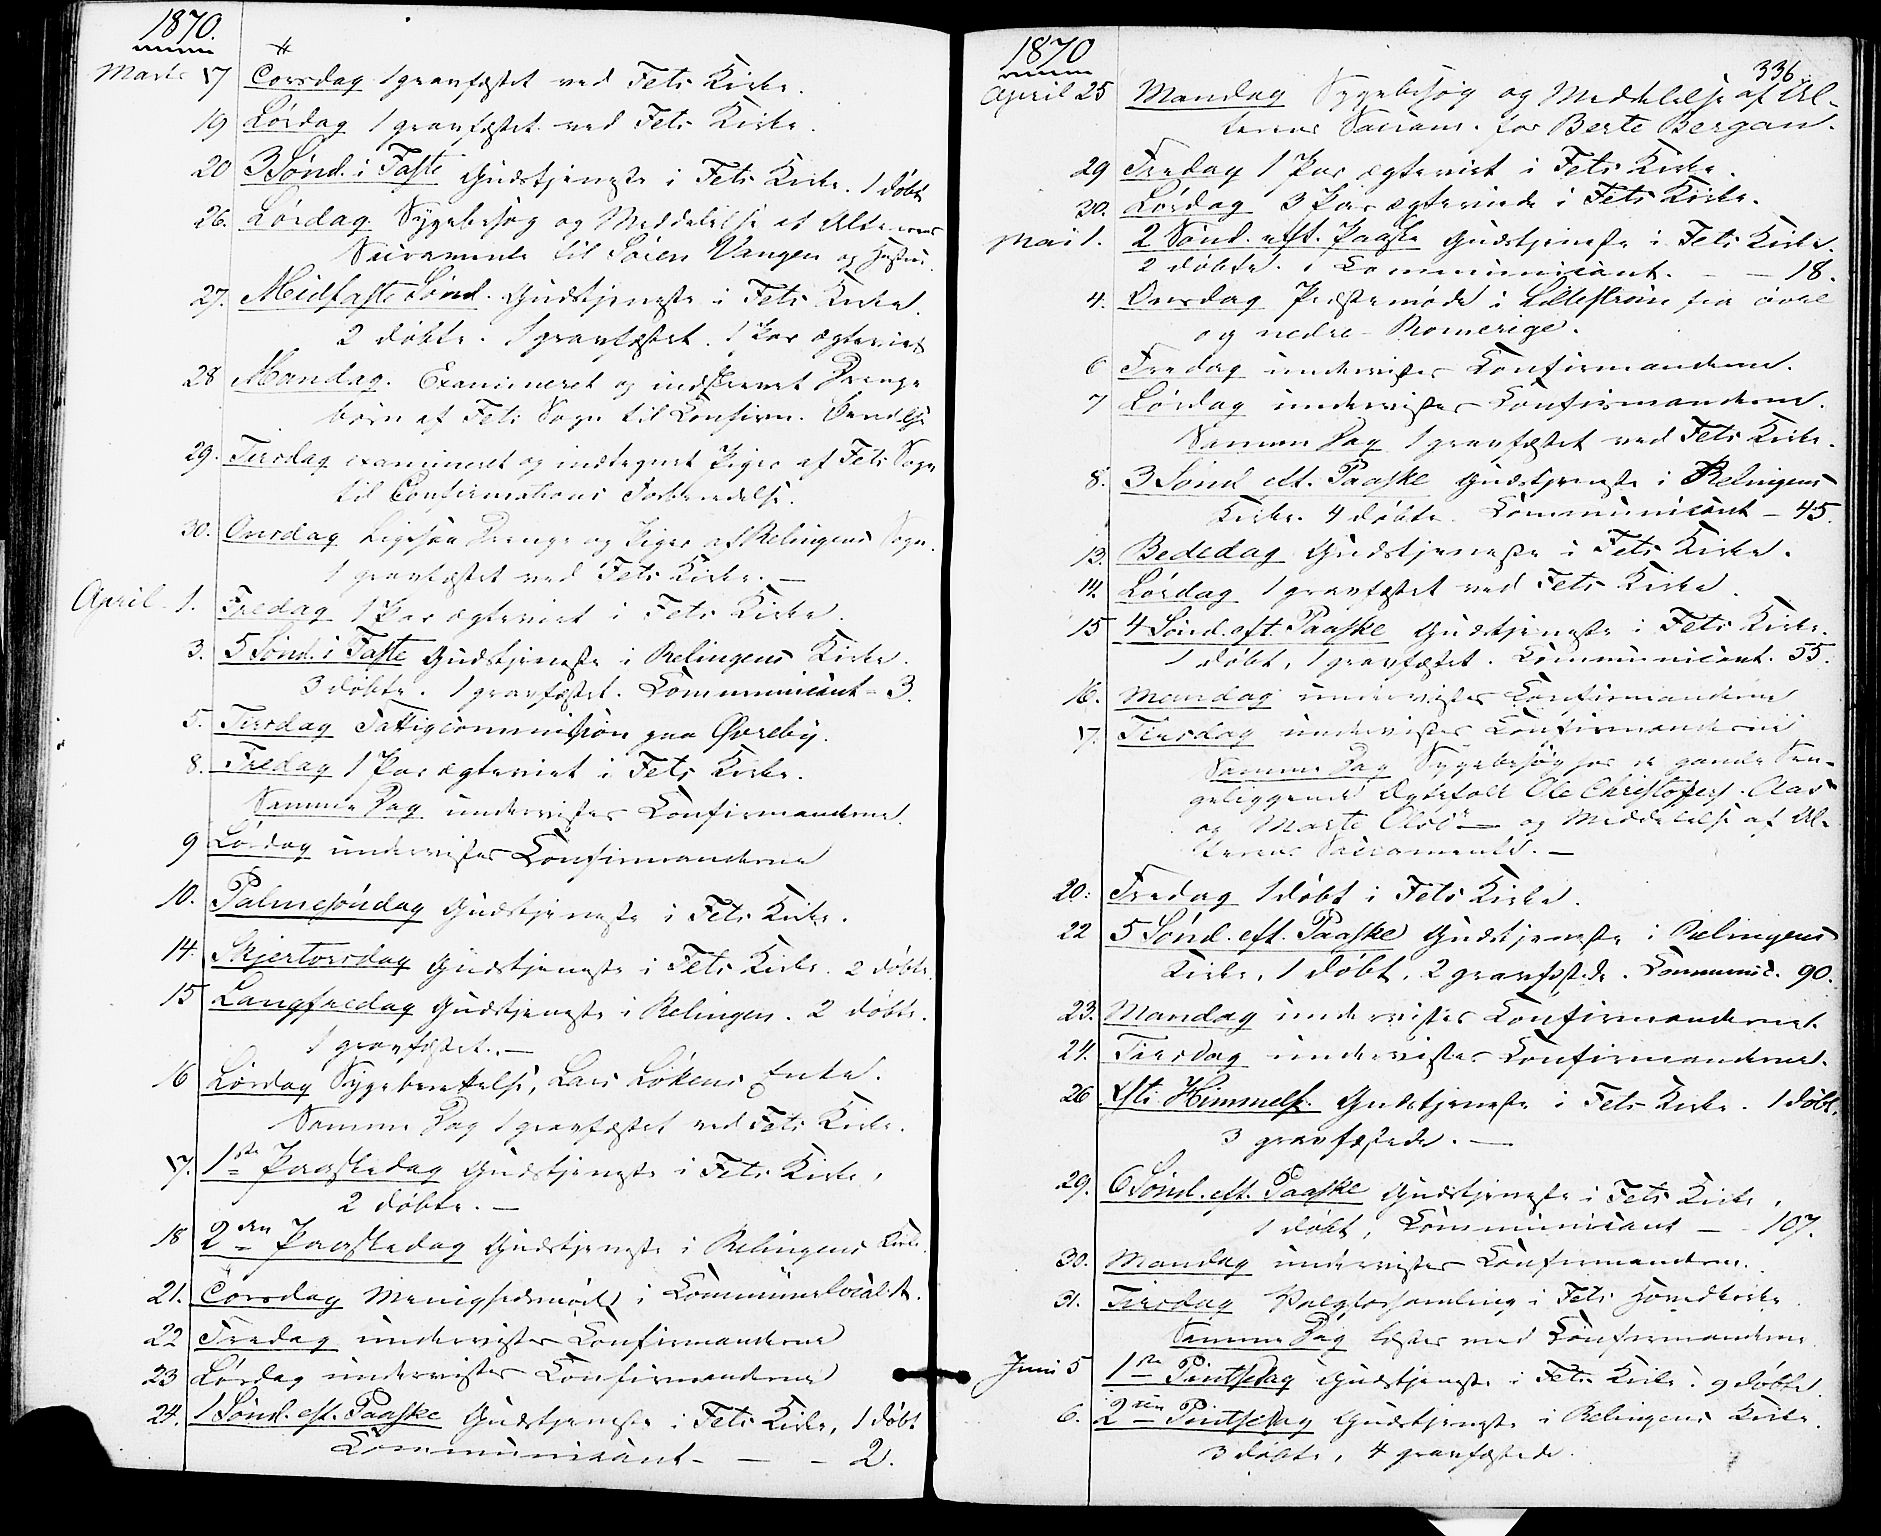 1870.
Marts 17 Torsdag 1 gravfæstet ved Fets Kirke.
19 Lørdag 1 gravfæstet ved Fets Kirke.
20 3 Sønd. i Faste Gudstjeneste i Fets Kirke. 1 døbt
26. Lørdag Sygebesøg og Meddelelse af Alterens
Sacramente til Søren Vangen og Hustru.
27. Midfaste Sønd. Gudstjeneste i Fets Kirke.
2 døbte. 1 gravfæstet. 1 Par ægteviet
28 Mandag. Examineret og indskrevet Drenge
børn af Fets Sogn til Confirm.
29. Tirsdag examineret og indtegnet Piger af Fets Sogn
til Confirmations Forberedelse.
30. Onsdag Ligesaa Drenge og Piger af Relingens Sogn.
1 gravfæstet ved Fets Kirke. —
April 1. Fredag 1 Par ægteviet i Fets Kirke.
3. 5 Sønd. i Faste Gudstjeneste i Relingens Kirke.
3 døbte. 1 gravfæstet. Communicant - 3.
5. Tirsdag Fattigcommission paa Øvreby.
8. Fredag 1 Par ægteviet i Fets Kirke.
Samme Dag undervistes Confirmanderne.
9 Lørdag undervistes Confirmanderne
10. Palmesøndag Gudstjeneste i Fets Kirke.
14. Skjertorsdag Gudstjeneste i Fets Kirke. 2 døbte.
15 Langfredag Gudstjeneste i Relingen. 2 døbte.
1 gravfæstet. —
16 Lørdag Sygeberettelse, Lars Løkens Enke.
Samme Dag 1 gravfæstet ved Fets Kirke.
17. 1ste Paaskedag Gudstjeneste i Fets Kirke,
2 døbte. —
18 2den Paaskedag Gudstjeneste i Relingens Kirke.
21. Torsdag Menighedsmøde i Communelocalet.
22 Fredag undervistes Confirmanderne
23 Lørdag undervistes Confirmanderne
24. 1 Sønd. eft. Paaske Gudstjeneste i Fets Kirke, 1 døbt
Communicant - — - 2.
1870
336
April 25 Mandag Sygebesøg og Meddelelse af Al-
terens Sacram. for Berte Bergan.
29 Fredag 1 Par ægteviet i Fets Kirke.
30. Lørdag 3 Par ægteviede i Fets Kirke.
Mai 1. 2 Sønd. eft. Paaske Gudstjeneste i Fets Kirke.
2 døbte. Communicant. - — 18.
4. Onsdag Præstemøde i Lillestrøm fra øvre
og nedre Romerige.
6 Fredag undervistes Confirmanderne.
7 Lørdag undervistes Confirmanderne.
Samme Dag 1 gravfæstet ved Fets Kirke.
8. 3 Sønd eft. Paaske Gudstjeneste i Relingens
Kirke. 4 døbte. Communicant - 45.
13. Bededag Gudstjeneste i Fets Kirke.
14. Lørdag 1 gravfæstet ved Fets Kirke.
15 4 Sønd. eft. Paaske Gudstjeneste i Fets Kirke.
1 døbt, 1 gravfæstet. Communicant. 55.
16. Mandag undervistes Confirmanderne
17. Tirsdag undervistes Confirmanderne
Samme Dag Sygebesøg hos de gamle Sen-
geliggende Ægtefolk Ole Christofers. Aas
og Marte Olsdr — og Meddelelse af Al-
terens Sacramente. —
20. Fredag 1 døbt i Fets Kirke.
22 5 Sønd. eft. Paaske Gudstjeneste i Relingens
Kirke, 1 døbt, 2 gravfæstede. Communic. 90.
23. Mandag undervistes Confirmanderne.
24. Tirsdag undervistes Confirmanderne.
26 Xsti Himmelf. Gudstjeneste i Fets Kirke. 1 døbt.
3 gravfæstede. —
29. 6 Sønd. eft. Paaske Gudstjeneste i Fets Kirke,
1 døbt, Communicant — - 107.
30. Mandag undervistes Confirmanderne.
31. Tirsdag Valgforsamling i Fets Hovedkirke.
Samme Dag læstes med Confirmanderne
Juni 5 1ste Pintsedag Gudstjeneste i Fets Kirke. 9 døbte.
6. 2den Pintsedag Gudstjeneste i Relingens Kirke.
3 døbte, 4 gravfæstede.